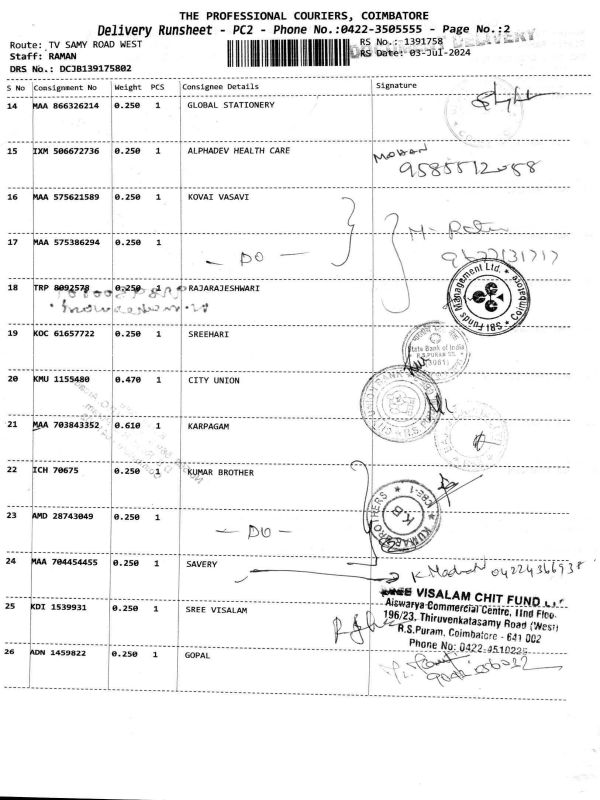 THE PROFESSIONAL COURIERS, COIMBATORE
Delivery Runsheet - PC2 - Phone No.:0422-3505555 - Page No.:2
DELIVERY
Route: TV SAMY ROAD WEST
RS No.: 1391758
Staff: RAMAN
RS Date: 03-Jul-2024
DRS No.: DCJB139175802
S No Consignment No Weight PCS Consignee Details Signature
14 MAA 866326214 0.250 1 GLOBAL STATIONERY
15 IXM 506672736 0.250 1 ALPHADEV HEALTH CARE
MOHAN
9585512058
16 MAA 575621589 0.250 1 KOVAI VASAVI
17 MAA 575386294 0.250 1
- DO -
9677131717
18 TRP 8092578 0.250 1 RAJARAJESHWARI
SBI Funds Management Ltd. * Coimbatore *
19 KOC 61657722 0.250 1 SREEHARI
State Bank of India
R.S.PURAM
20 KMU 1155480 0.470 1 CITY UNION
21 MAA 703843352 0.610 1 KARPAGAM
22 ICH 70675 0.250 1 KUMAR BROTHER
KUMAR BROTHERS * CBE-1 *
K.B
23 AMD 28743049 0.250 1
- DO -
24 MAA 704454455 0.250 1 SAVERY
04224366938
25 KDI 1539931 0.250 1 SREE VISALAM
SREE VISALAM CHIT FUND
Aiswarya Commercial Centre, IInd Floo
196/23, Thiruvenkatasamy Road (West)
R.S.Puram, Coimbatore - 641 002
Phone No: 0422-4510225
26 ADN 1459822 0.250 1 GOPAL